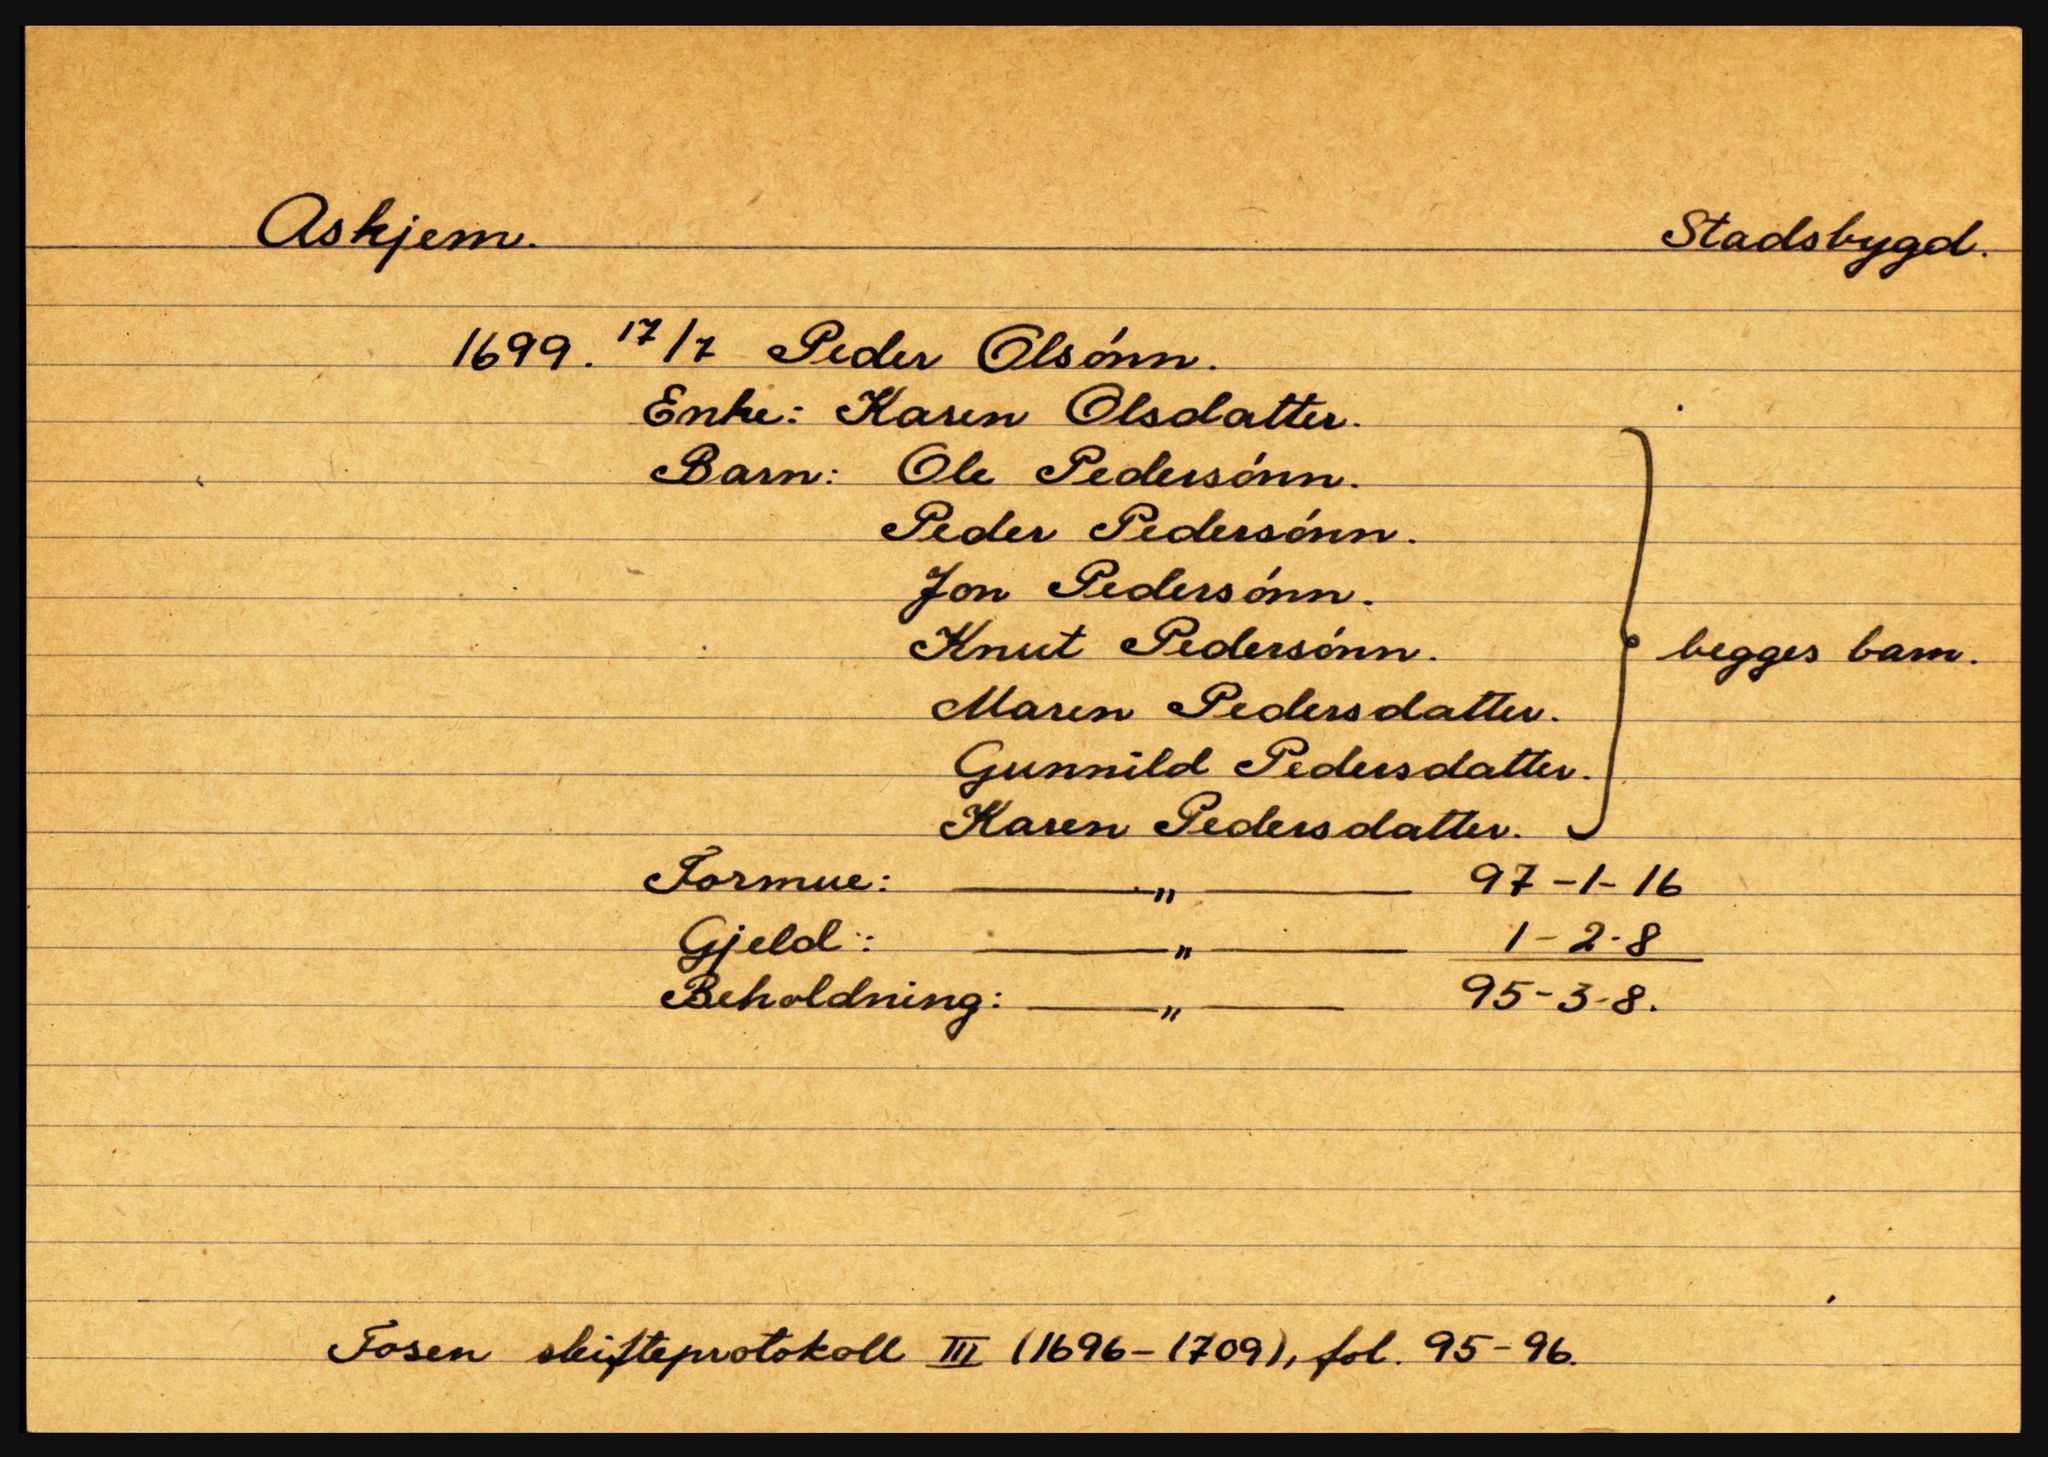 Askjem. Stadsbygd.
1699. 17/7 Peder Olsónn.
Enke: Karen Olsdatter.
Barn: Ole Pedersónn.
Peder Pedersónn.
Jon Pedersónn.
Knut Pedersónn. begges barn.
Maren Pedersdatter.
Gunnild Pedersdatter.
Karen Pedersdatter.
Formue: —— " —— 97-1-16
Gjeld: —— " —— 1-2-8
Beholdning: —— " —— 95-3-8.
Fosen skifteprotokoll III (1696-1709), fol. 95-96.